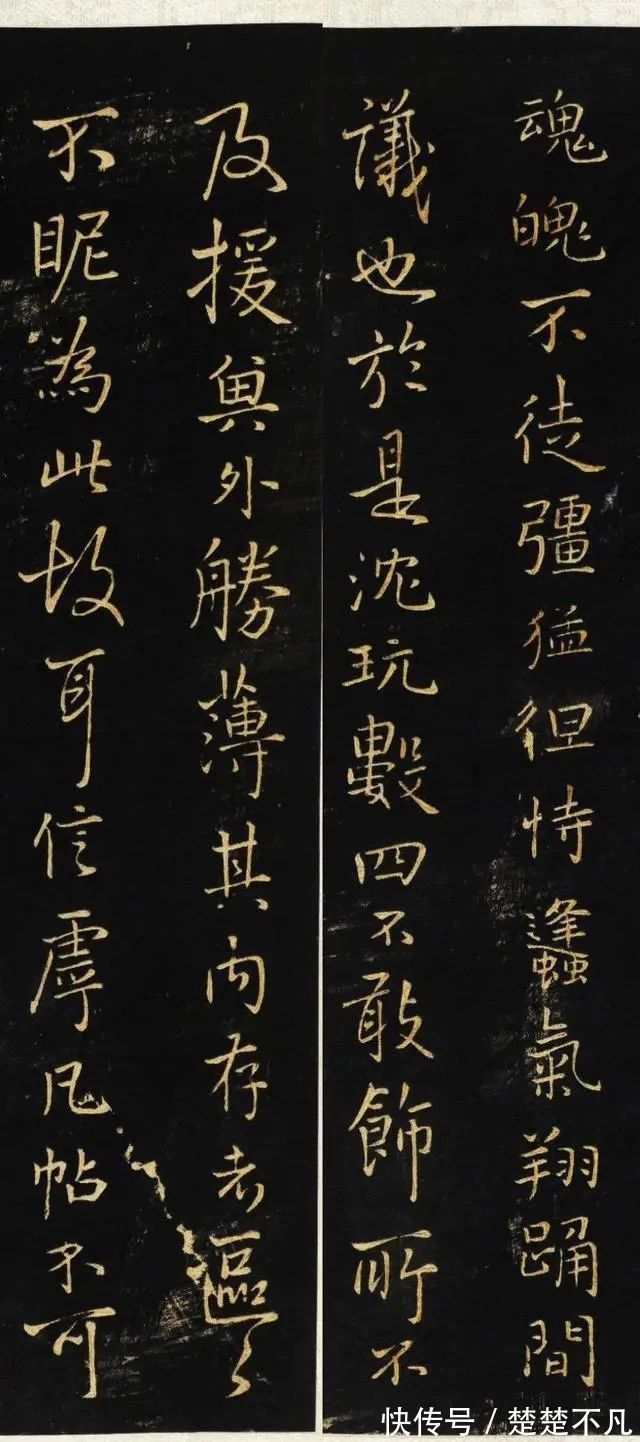 魂魄不徒彊猛但恃蠭氣翔踊間
議也於是沈玩數四不敢飾所不
及援外勝薄其內存者區々
不眤為此故耳信虖凡帖不可
快传号/楚楚不凡